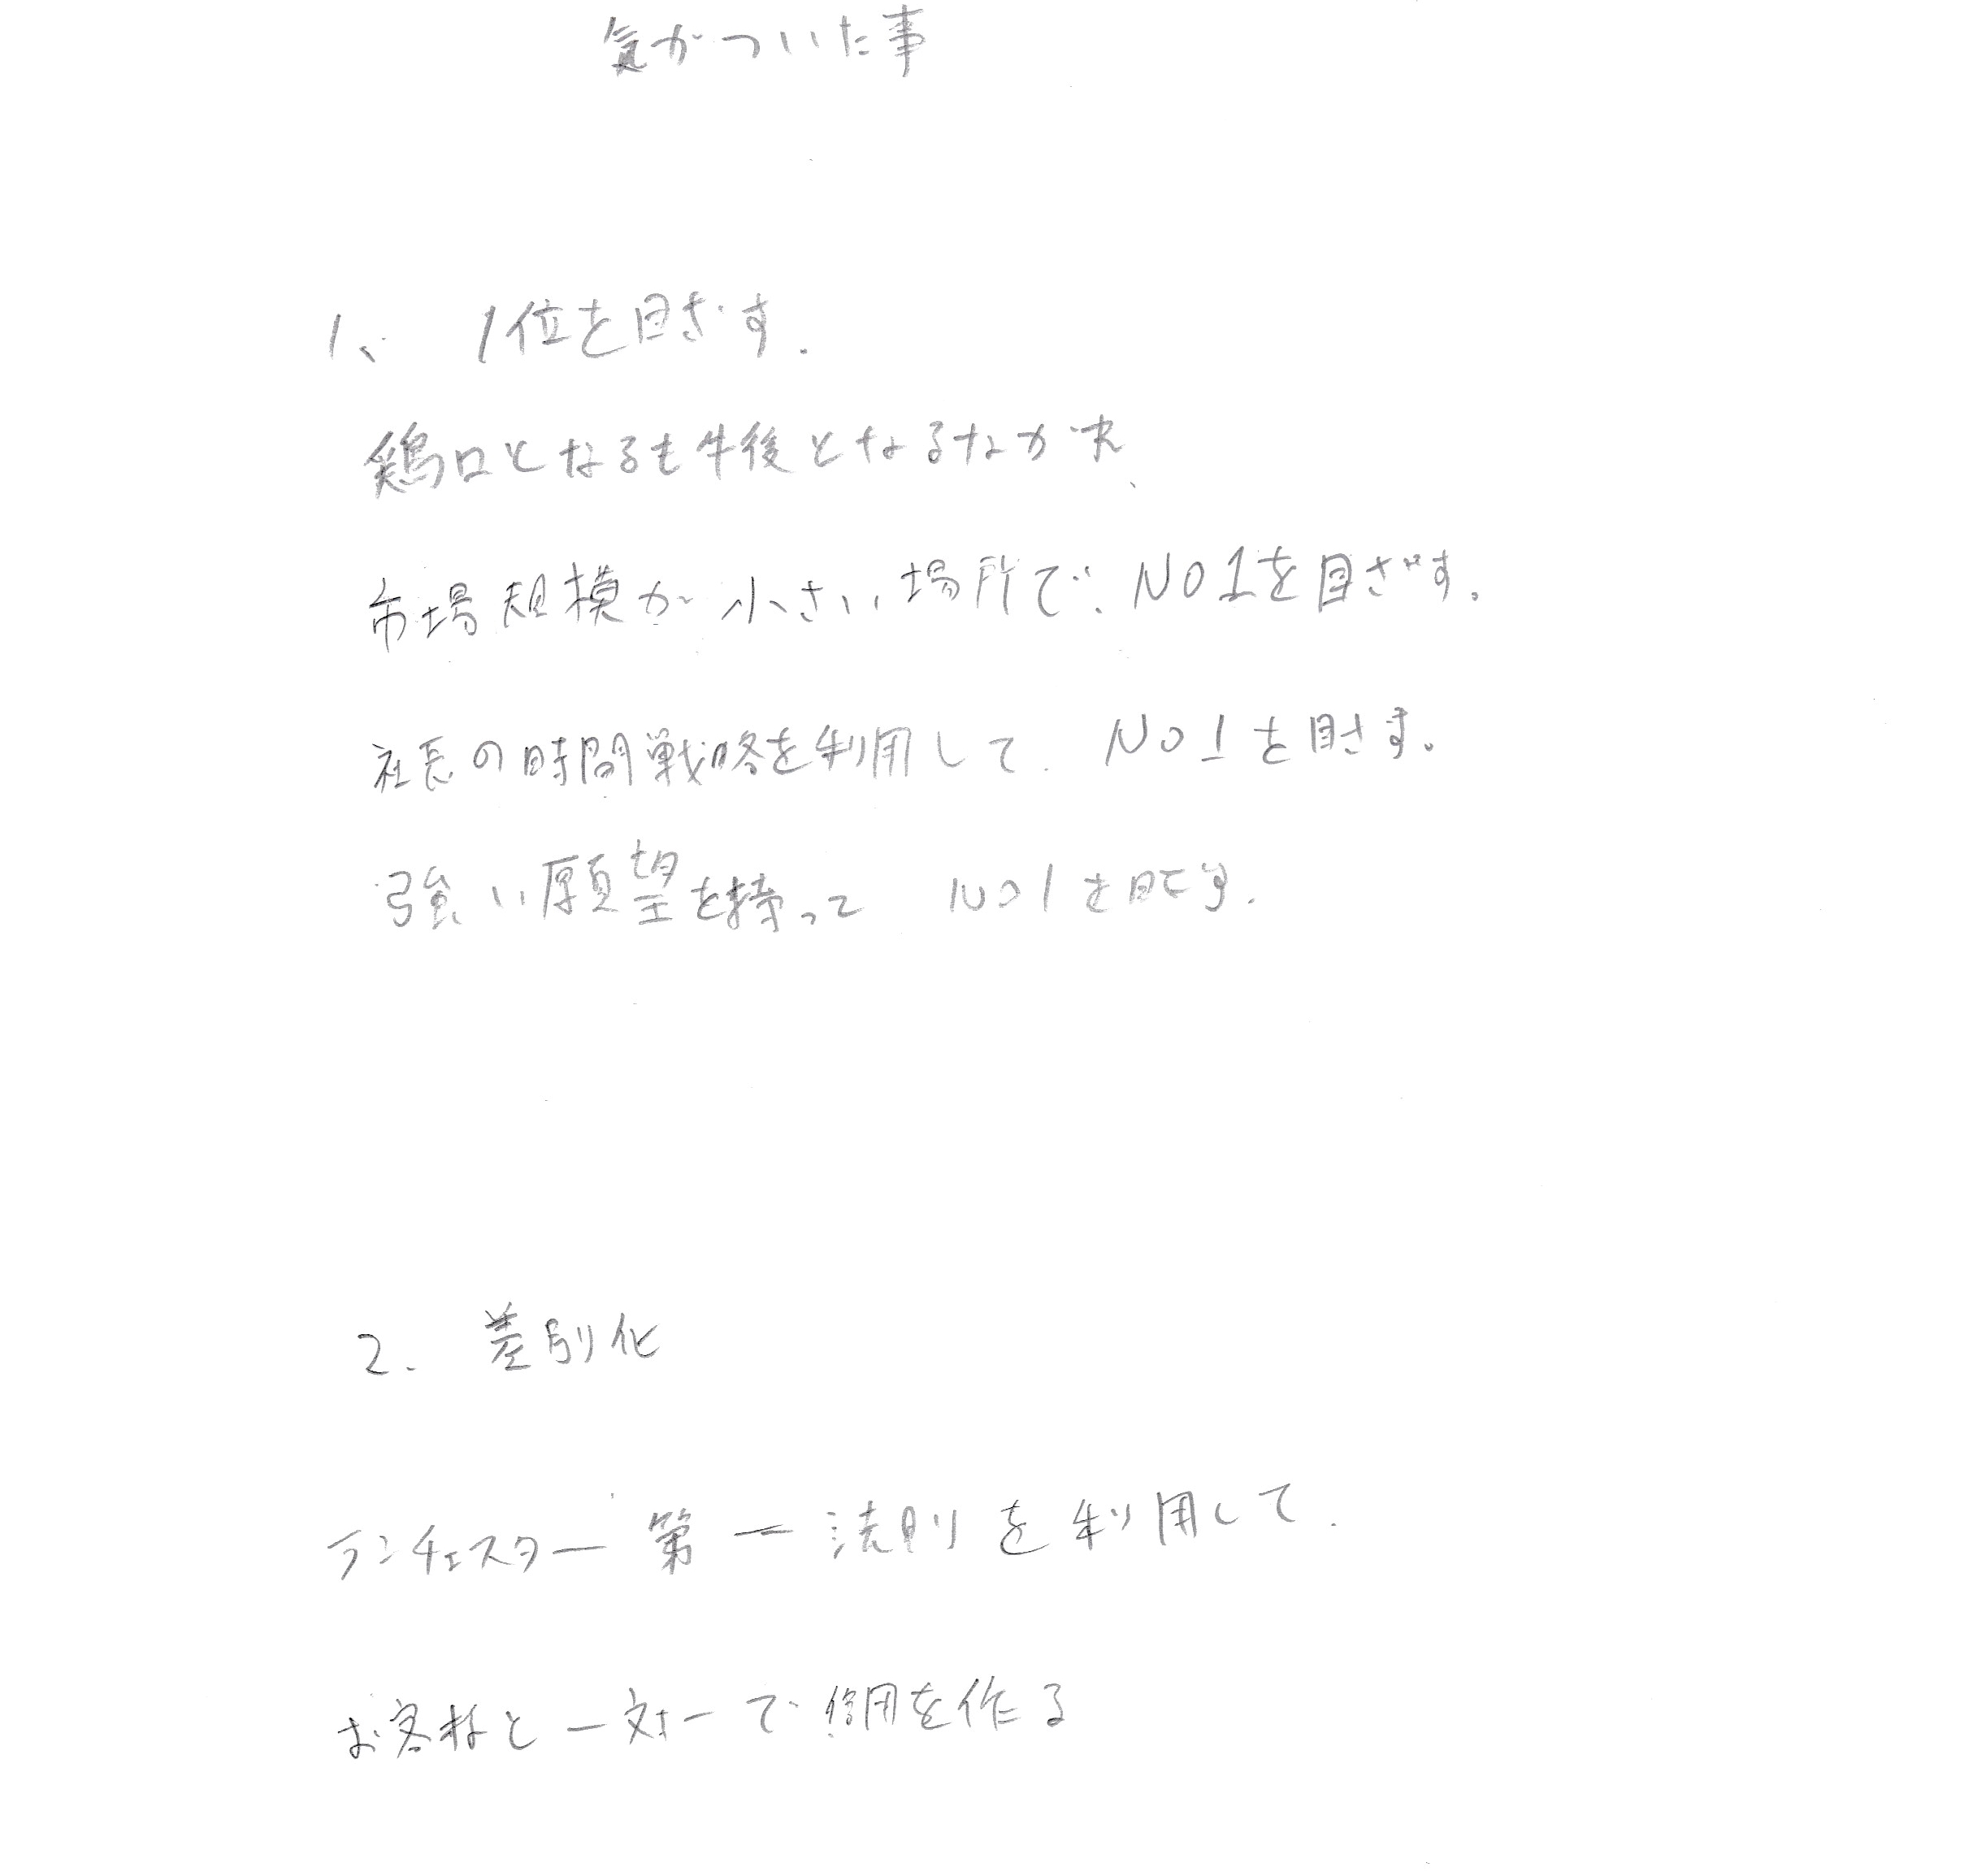 気がついた事
1、 1位を目ざす.
鶏口となるも牛後となるなかれ、
市場規模が小さい場所で、NO1を目ざす。
社長の時間戦略を利用して. NO1を目ざす。
強い願望を持って NO1を目ざす.
2. 差別化
ランチェスター第一法則を利用して.
お客様と一対一で信用を作る